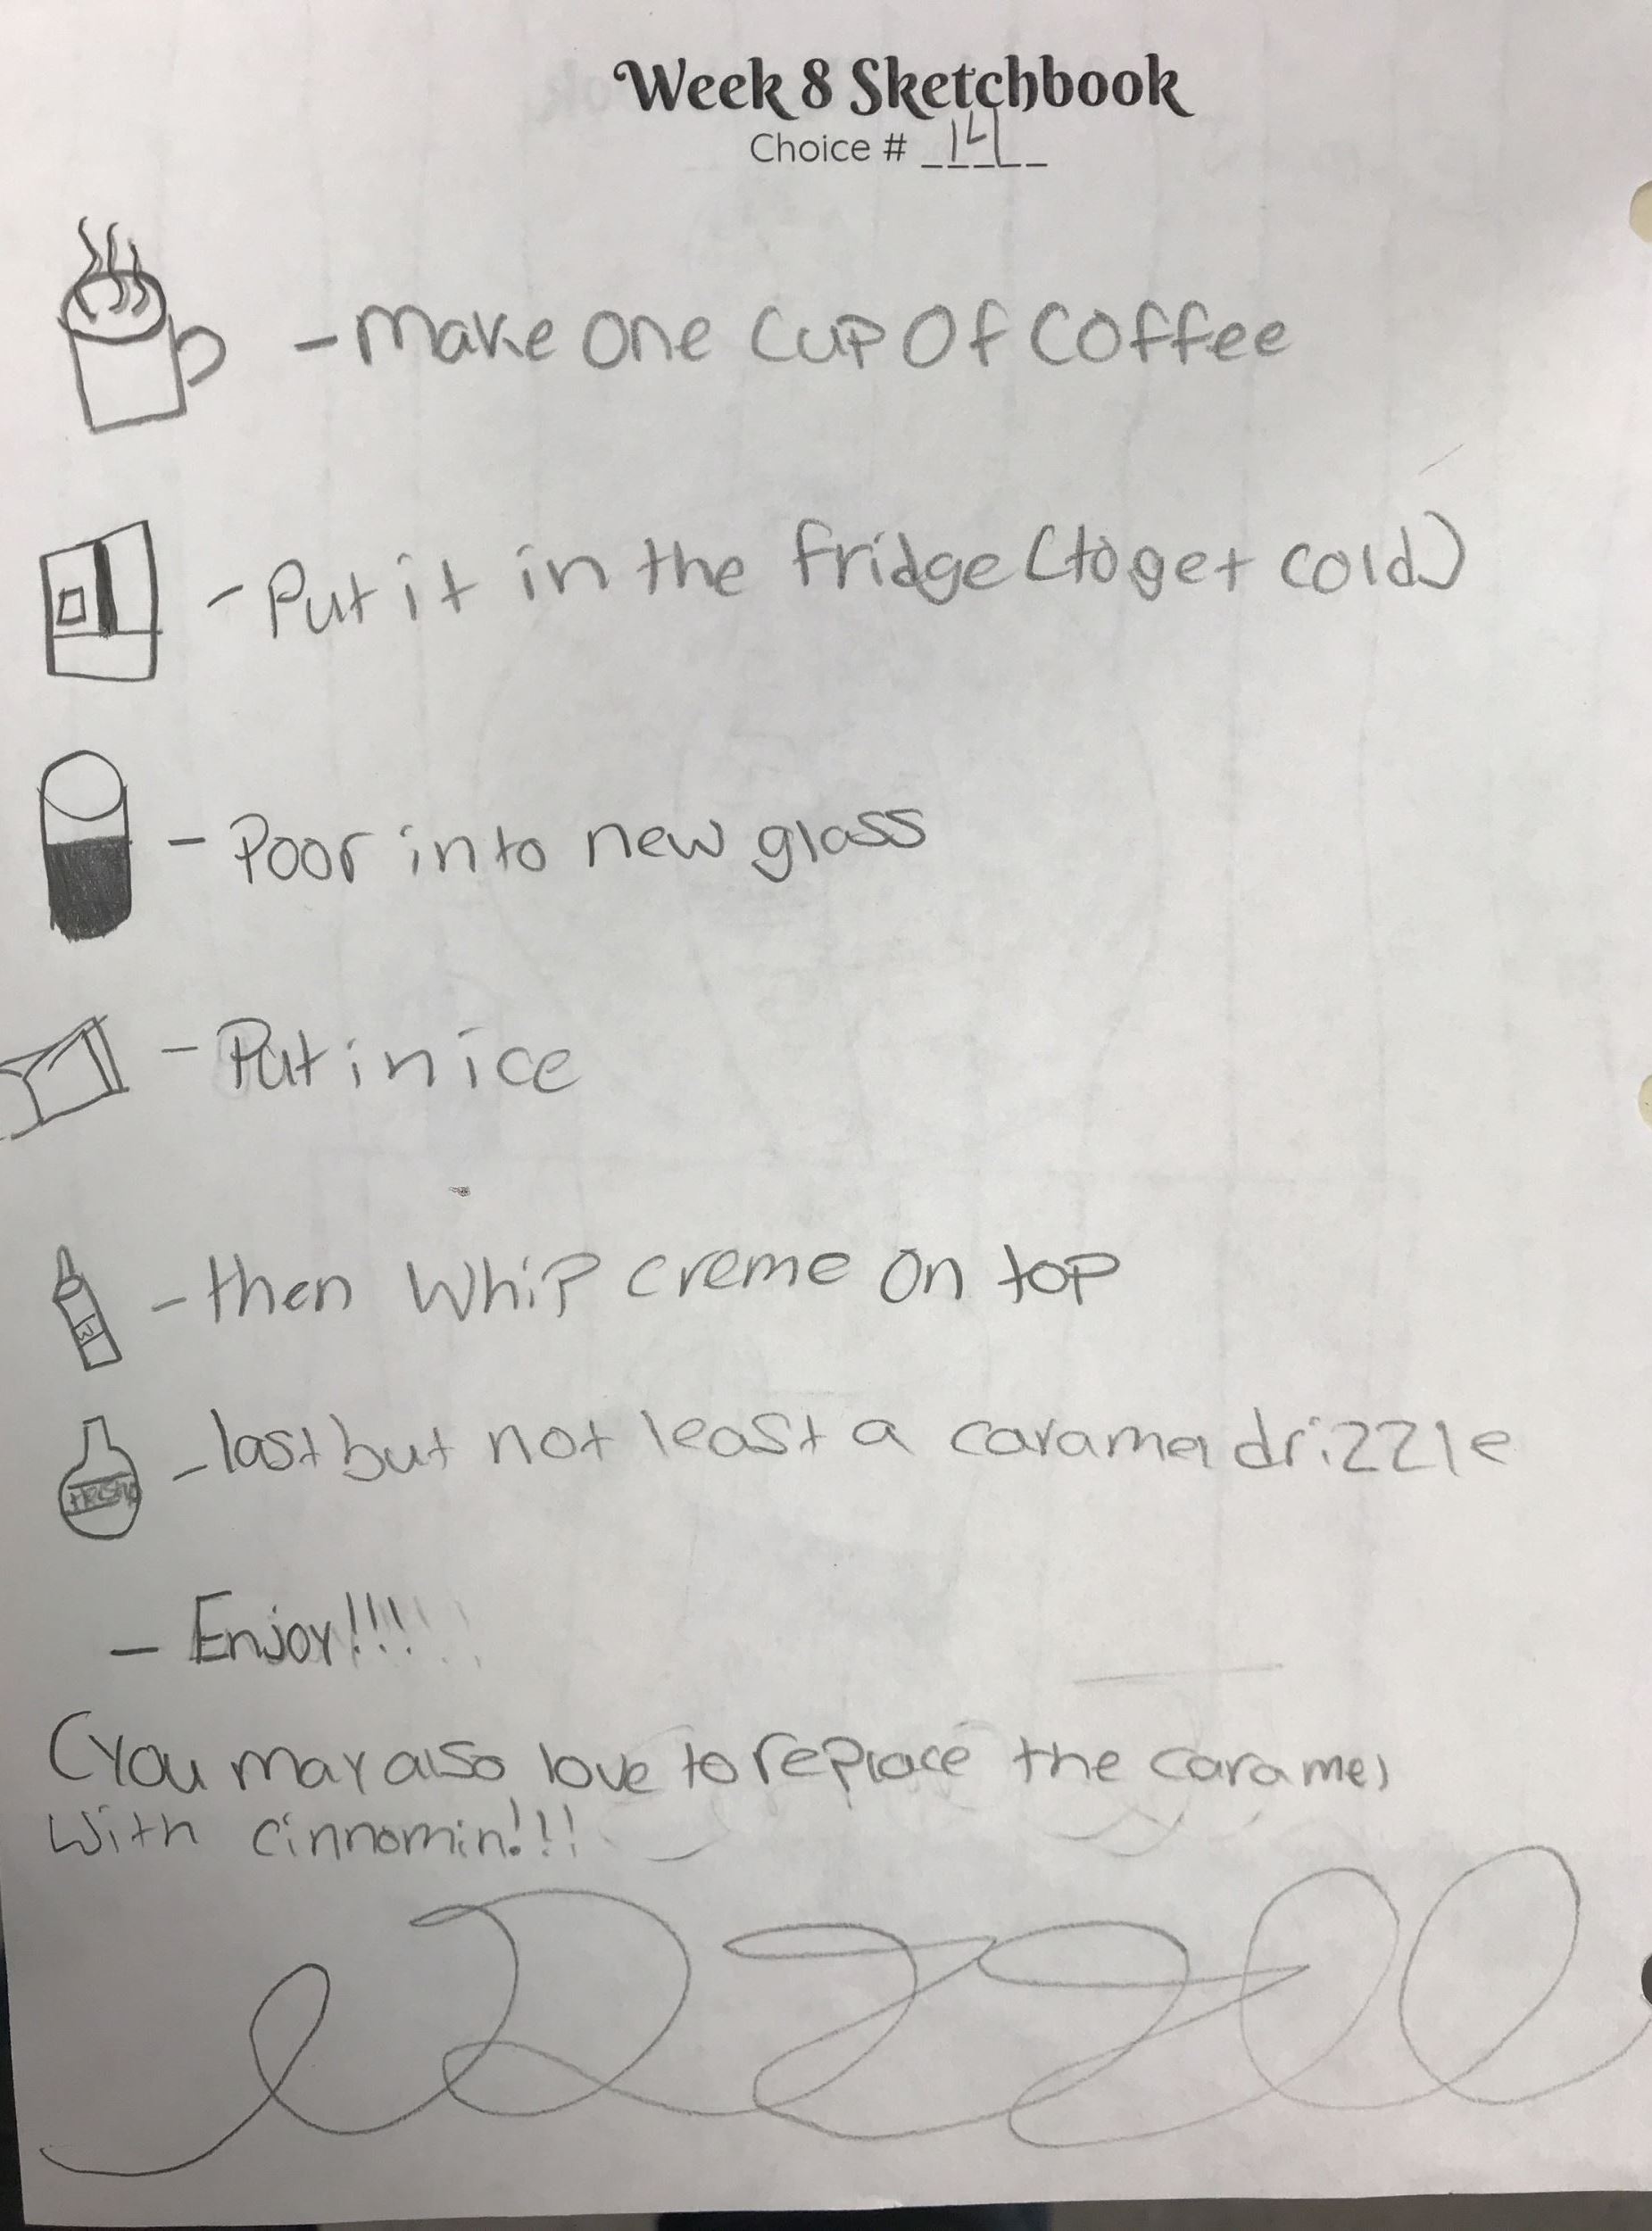 Week 8 Sketchbook
Choice # 14
- Make one cup of coffee
- Put it in the fridge (to get cold)
- Poor into new glass
- Put in ice
- then whip creme on top
W
- last but not least a caramel drizzle
- Enjoy!!!
(you may also love to replace the caramel
with cinnomin!!!